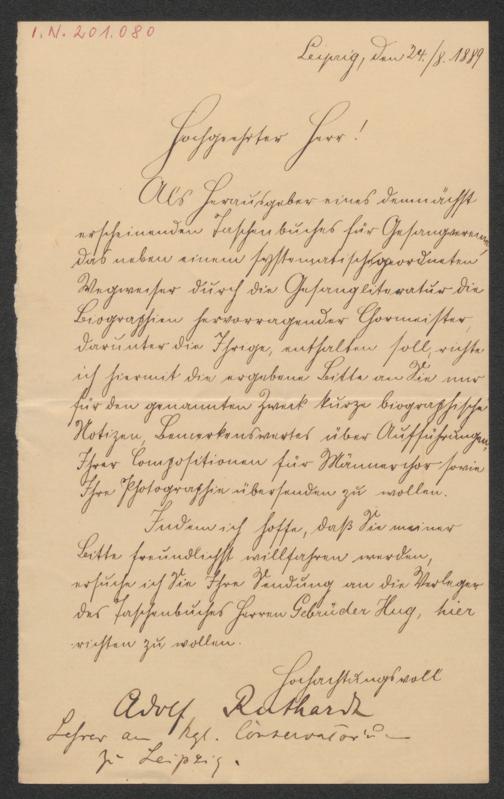 I.N. 201.080
Leipzig, den 24./8. 1889
Hochgeehrter Herr!
Als Herausgeber eines demnächst
erscheinenden Taschenbuches für Gesangvereine,
das neben einem systematisch geordneten
Wegweiser durch die Gesangliteratur die
Biographien hervorragender Chormeister,
darunter die Ihrige, enthalten soll, richte
ich hiermit die ergebene Bitte an Sie mir
für den genannten Zweck kurze biographische
Notizen, Bemerkenswertes über Aufführungen
Ihrer Compositionen für Männerchor sowie
Ihre Photographie übersenden zu wollen.
Indem ich hoffe, daß Sie meiner
Bitte freundlichst willfahren werden,
ersuche ich Sie Ihre Sendung an die Verleger
des Taschenbuches Herren Gebrüder Hug, hier
richten zu wollen.
Hochachtungsvoll
Adolf Ruthardt
Lehrer am Kgl. Conservatorium
zu Leipzig.